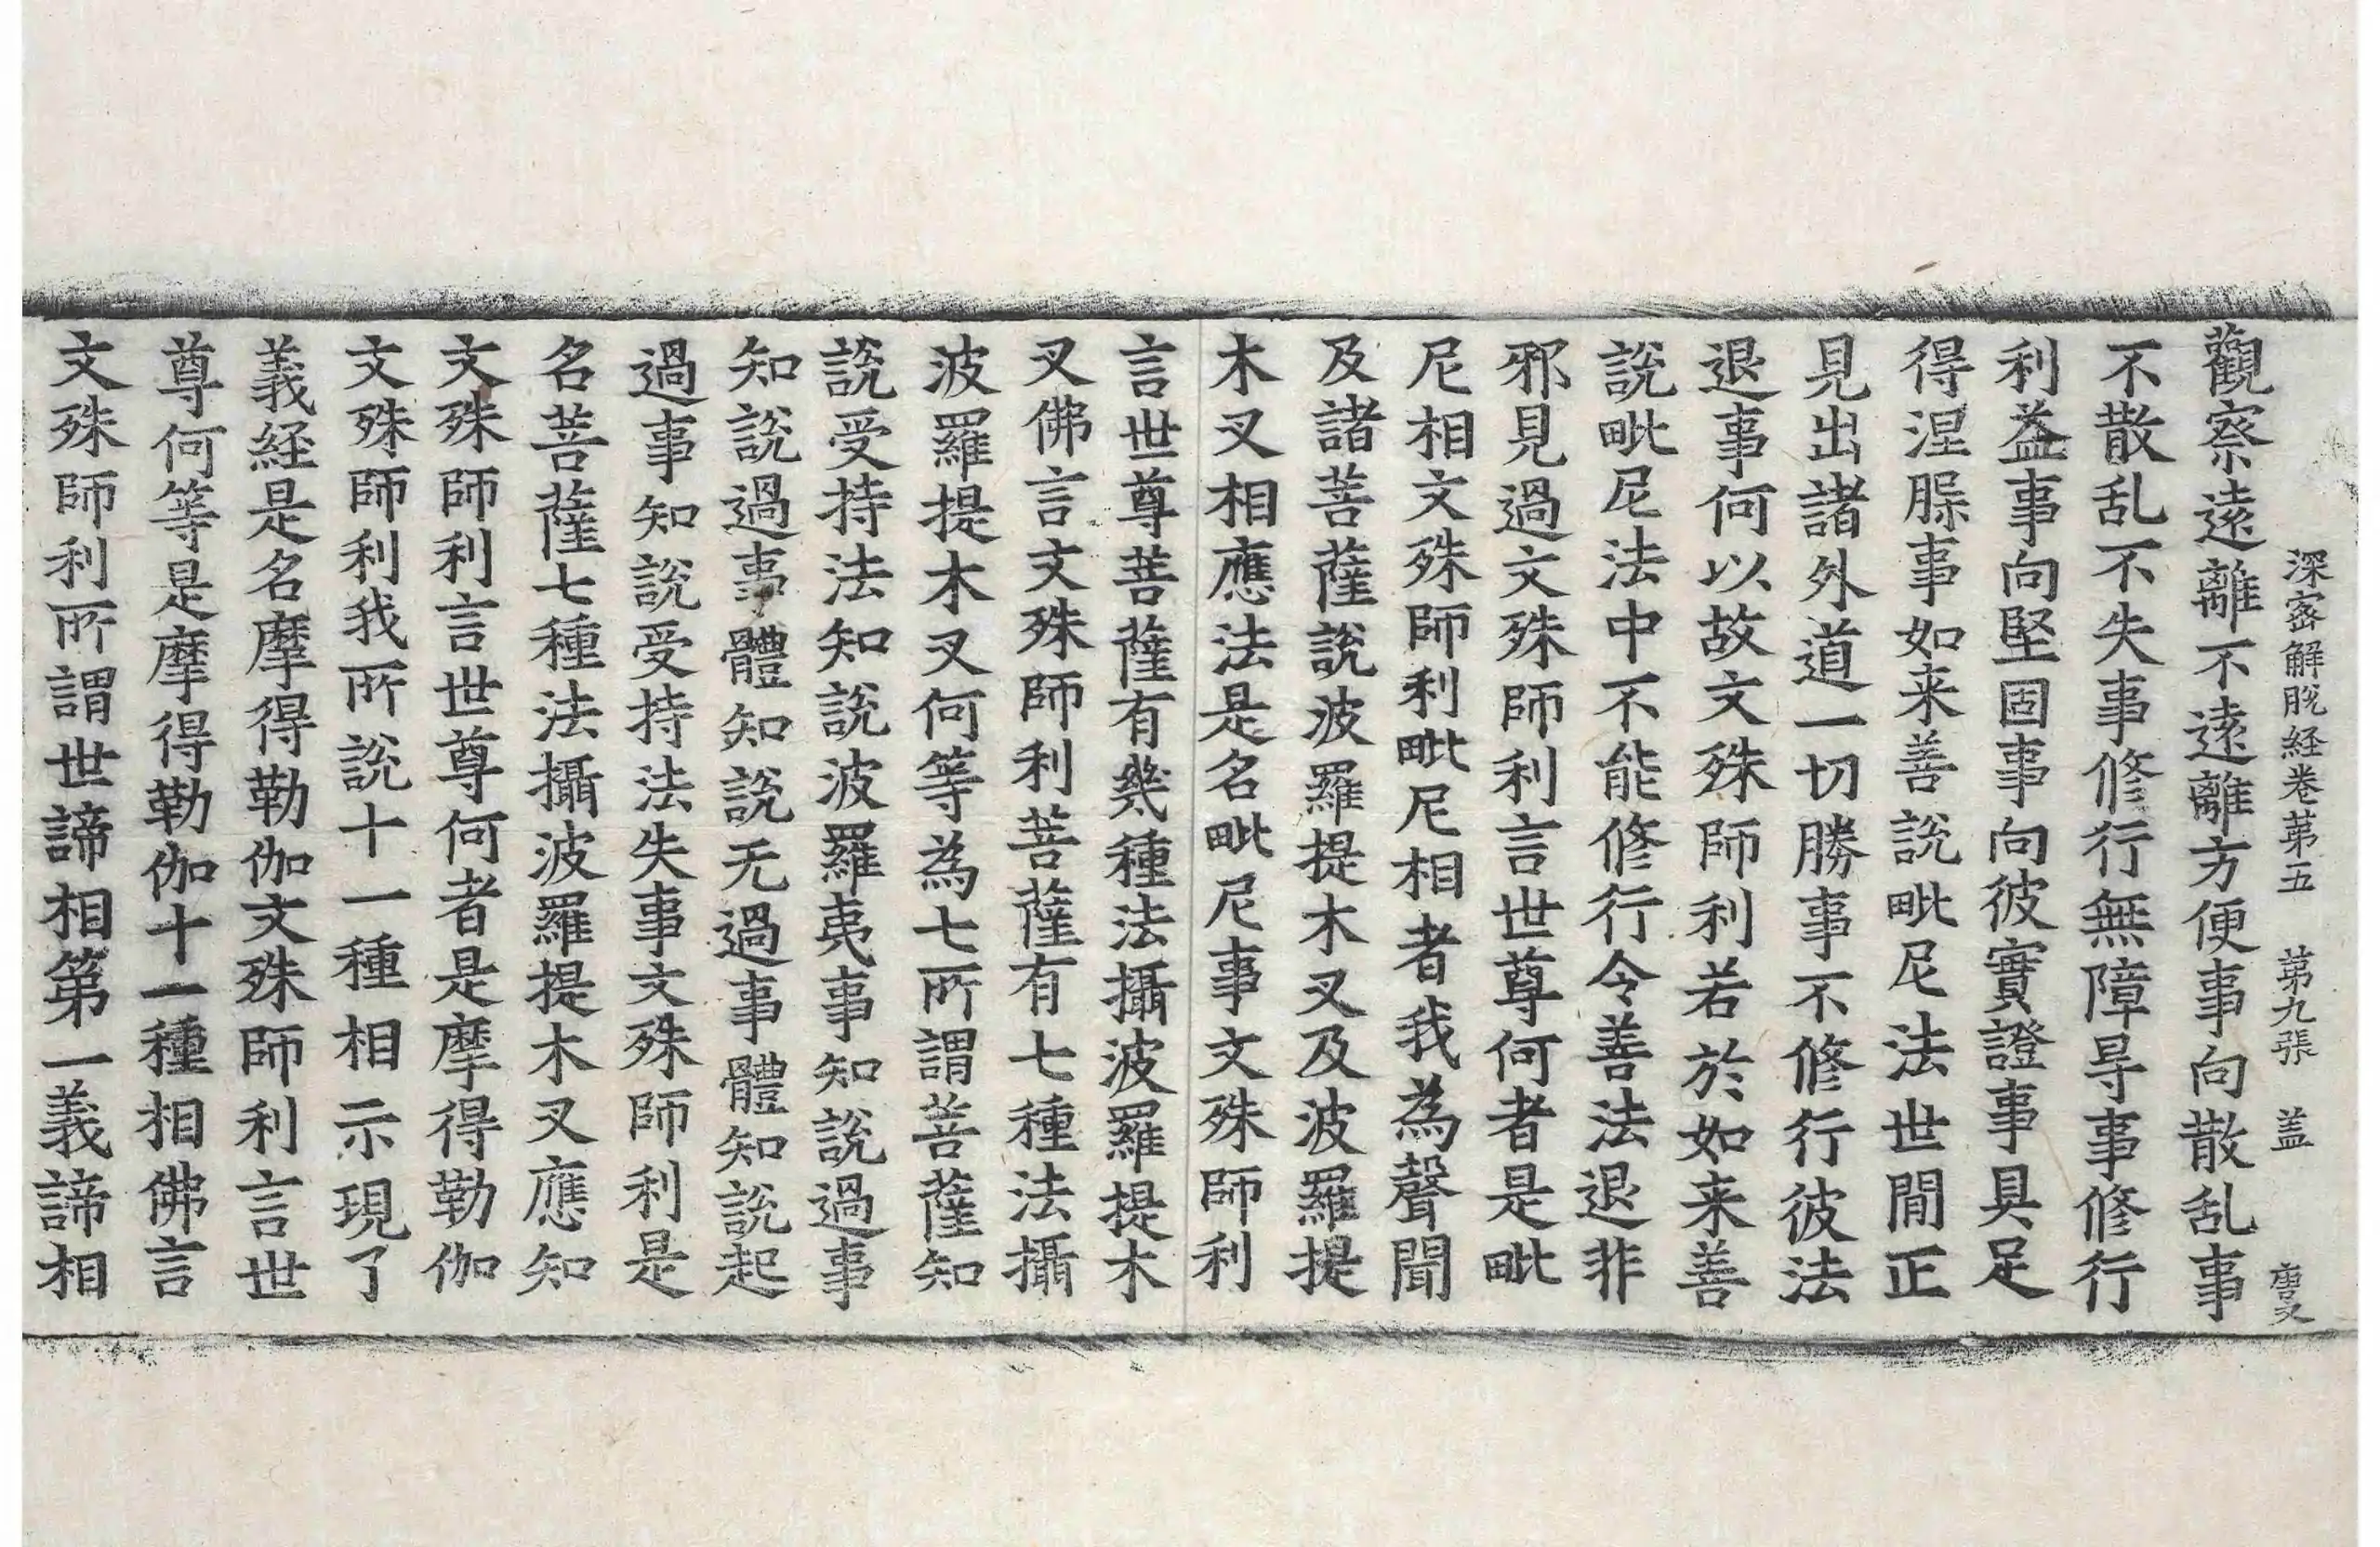 深密解脫経卷苐五　苐九張　盖　唐叉
觀察遠離不遠離方便事向散乱事
不散乱不失事修行無障㝵事修行
利益事向堅固事向彼實證事具足
得涅脲事如来善說毗尼法世間正
見出諸外道一切勝事不修行彼法
退事何以故文殊師利若於如来善
說毗尼法中不能修行令善法退非
邪見過文殊師利言世尊何者是毗
尼相文殊師利毗尼相者我為聲聞
及諸菩薩說波羅提木叉及波羅提
木叉相應法是名毗尼事文殊師利
言世尊菩薩有幾種法攝波羅提木
叉佛言文殊師利菩薩有七種法攝
波羅提木叉何等為七所謂菩薩知
說受持法知說波羅夷事知說過事
知說過事體知說无過事體知說起
過事知說受持法失事文殊師利是
名菩薩七種法攝波羅提木叉應知
文殊師利言世尊何者是摩得勒伽
文殊師利我所說十一種相示現了
義経是名摩得勒伽文殊師利言世
尊何等是摩得勒伽十一種相佛言
文殊師利所謂世諦相第一義諦相